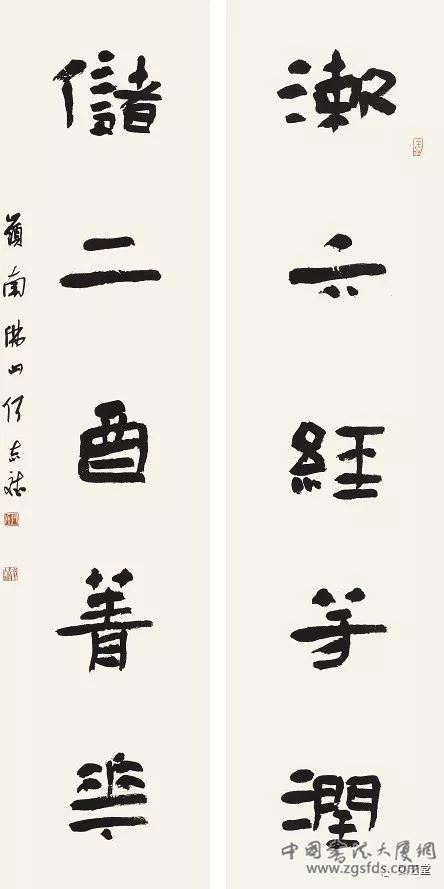 漱六經芳潤
儲二酉菁華
嶺南佛山何志斌
中國書法大廈網
www.zgsfds.com